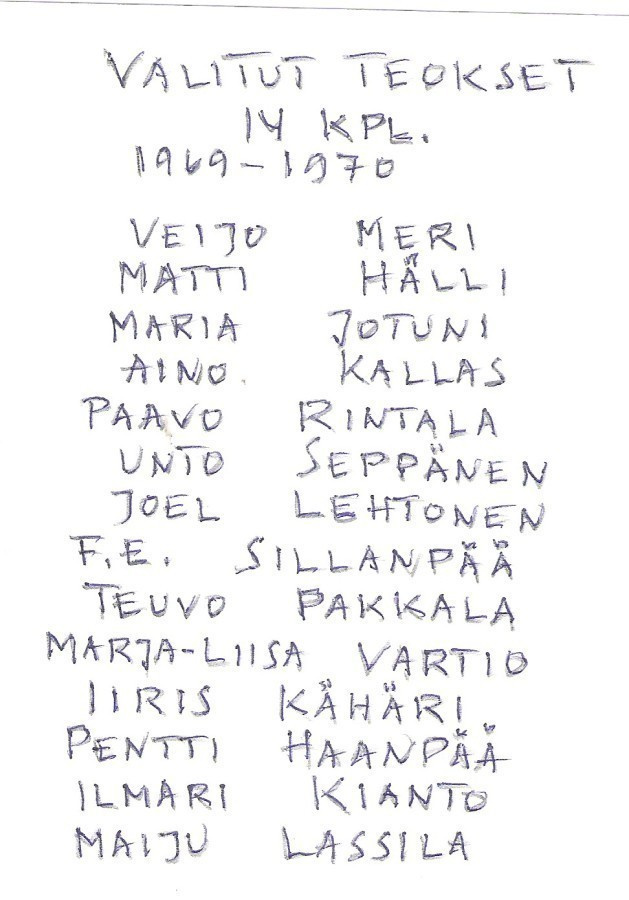 VALITUT TEOKSET
14 KPL.
1969-1970
VEIJO MERI
MATTI HÄLLI
MARIA JOTUNI
AINO KALLAS
PAAVO RINTALA
UNTO SEPPÄNEN
JOEL LEHTONEN
F.E. SILLANPÄÄ
TEUVO PAKKALA
MARJA-LIISA VARTIO
IIRIS KÄHÄRI
PENTTI HAANPÄÄ
ILMARI KIANTO
MAIJU LASSILA